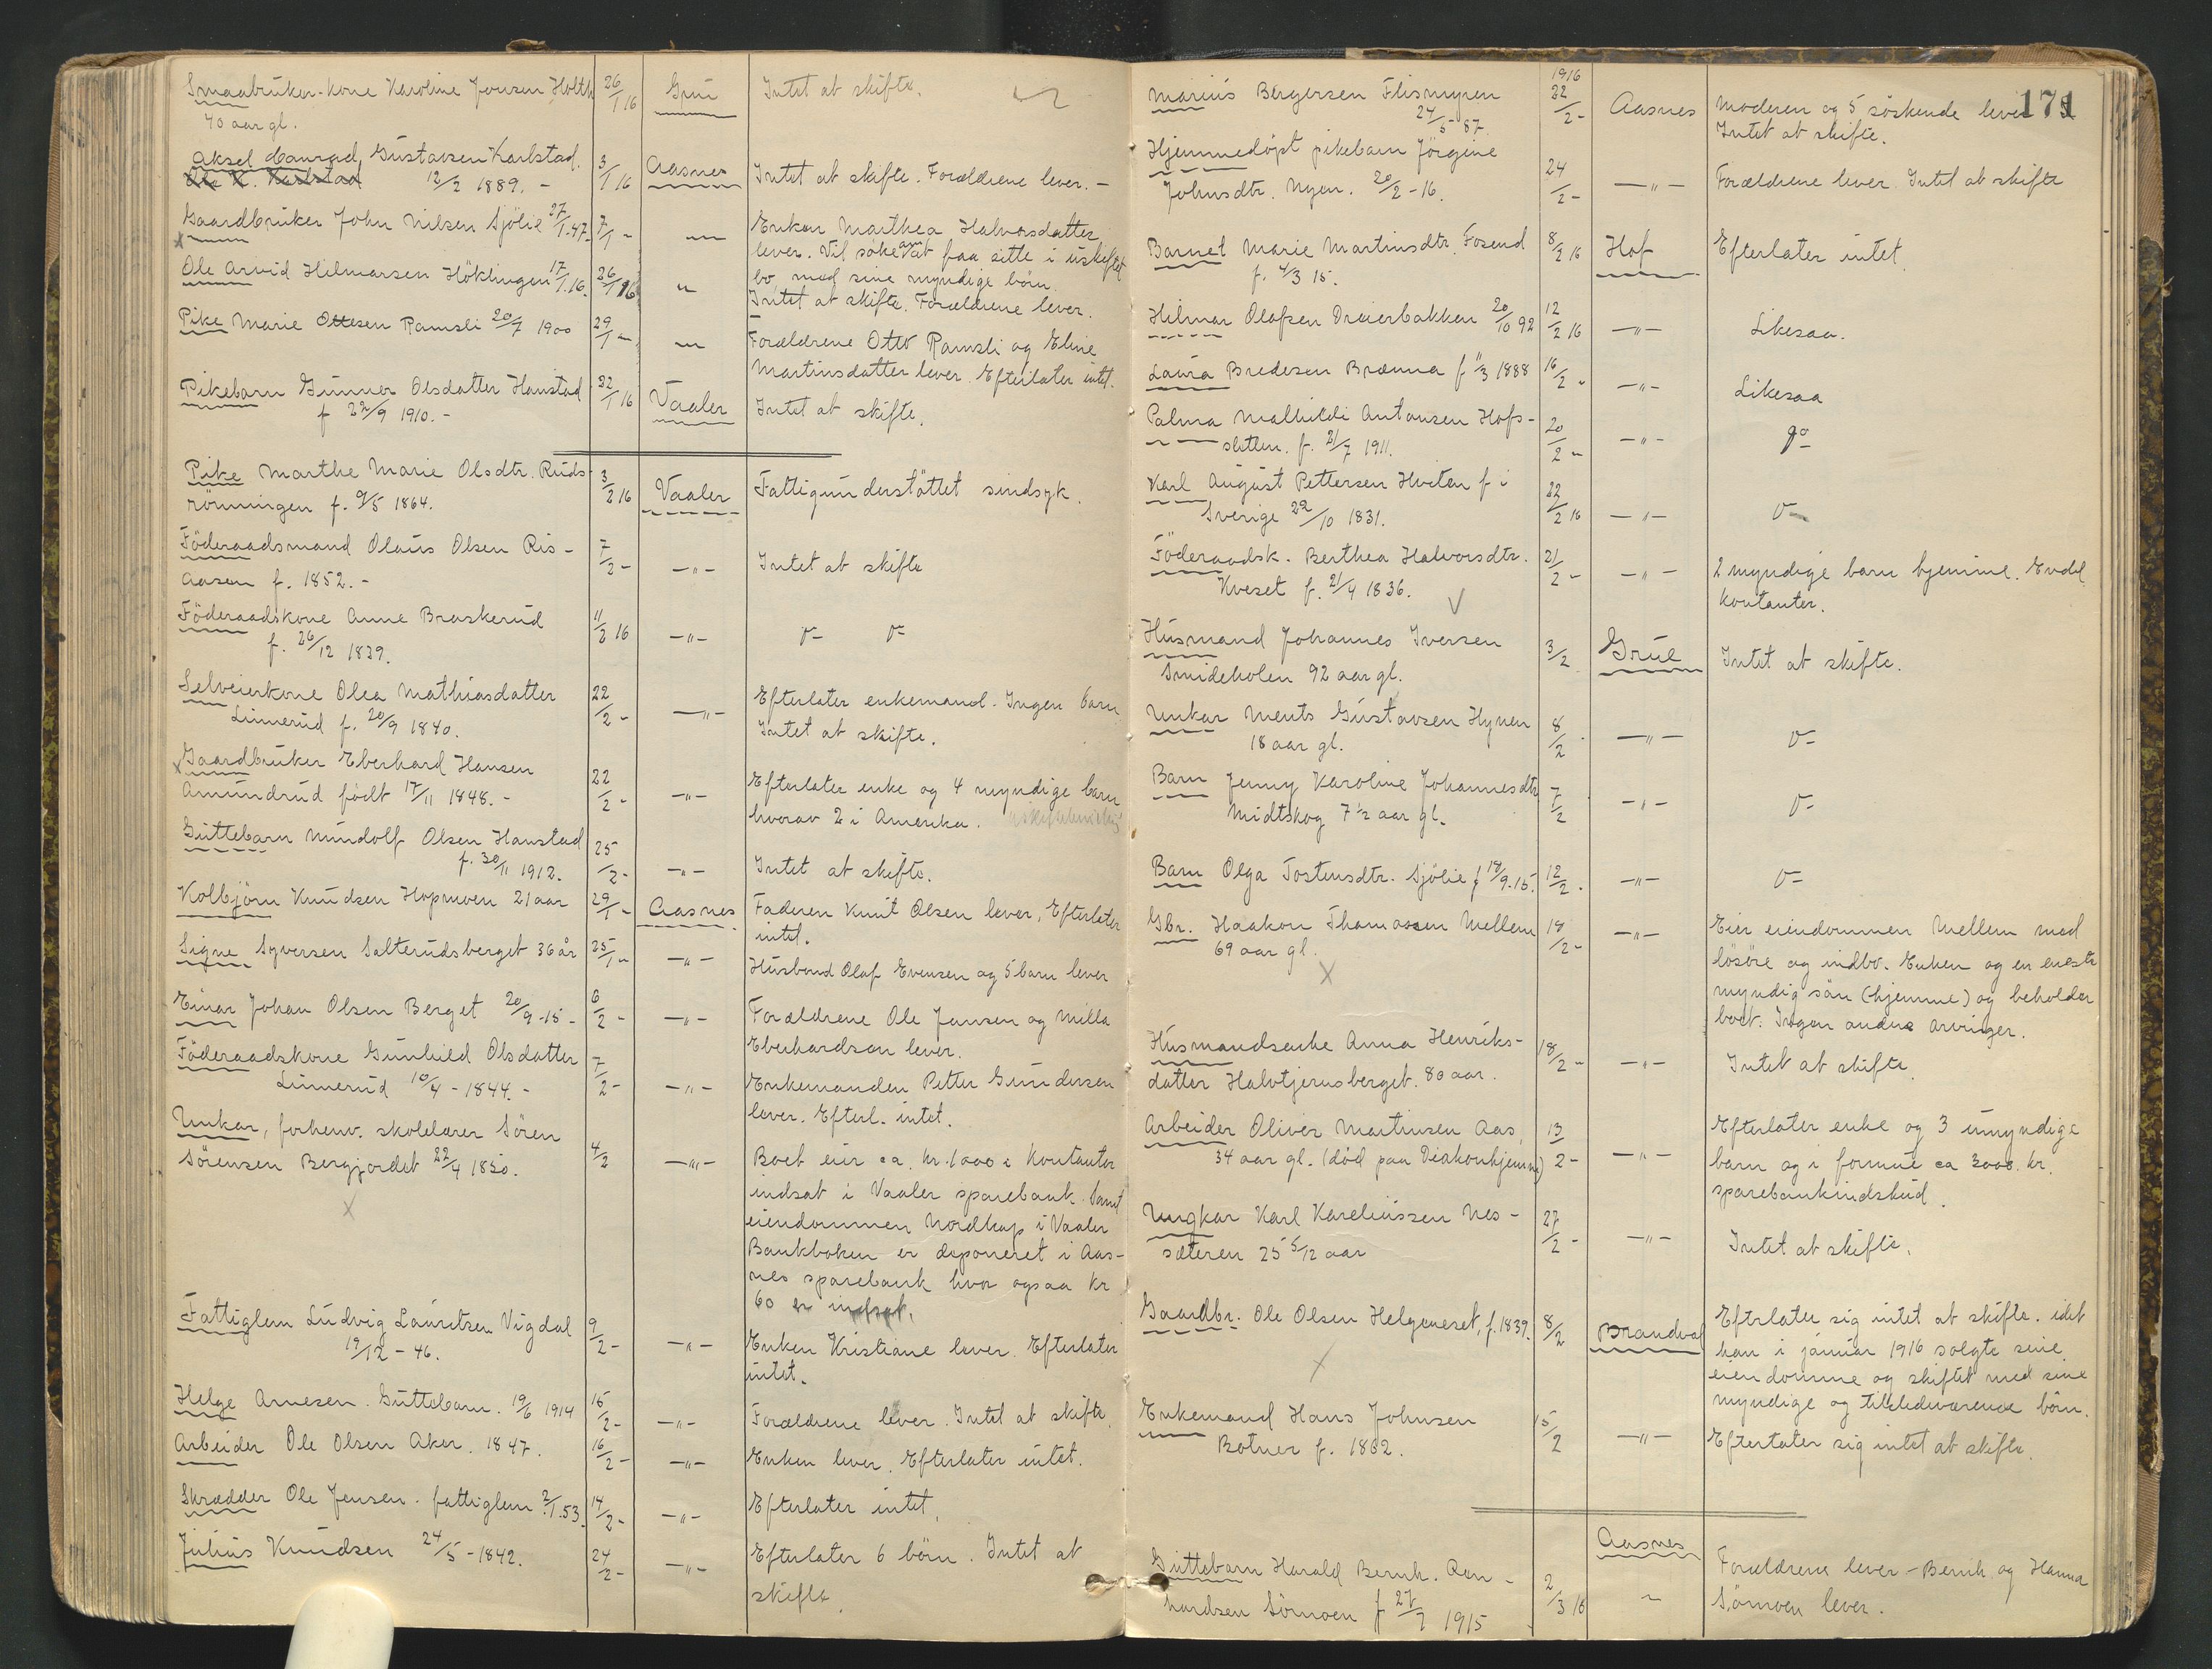 Smaabruker-kone Karoline Jonsen Holth 26/1 16 Grue Intet at skifte.
40 aar gl.
Aksel Conrad Gustavsen Karlstad. 3/1 16 Aasnes Intet at skifte. Forældrene lever. -
12/2 1889. -
Gaardbruker John Nilsen Sjölie 27/1.47. 7/1 - -"- Enken Marthea Halvorsdatter
lever. Vil söke at faa sitte i uskiftet
bo med sine myndige börn.
Ole Arvid Hilmarsen Höklingen 17/1.16. 26/1 16 " Intet at skifte. Forældrene lever.
Pike Marie Ottesen Ramsli 20/7 1900 29/1 - -"- Forældrene Otto Ramsli og Eline
Martinsdatter lever. Efterlater intet.
Pikebarn Gunner Olsdatter Hanstad 22/1 16 Vaaler Intet at skifte.
f 22/9 1910. -
Pike Marthe Marie Olsdtr. Ruds- 3/2 16 Vaaler Fattigunderstöttet sindsyk.
rönningen f. 9/5 1864.
Föderaadsmand Olaus Olsen Ris- 7/2 - -"- Intet at skifte
aasen f. 1852. -
Föderaadskone Anne Braskerud 11/2 16 -"-
f. 26/12 1839.
Selveierkone Olea Mathiasdatter 22/2 - -"- Efterlater enkemand. Ingen barn
Linnerud f. 20/9 1840. Intet at skifte.
Gaardbruker Eberhard Hansen 22/2 - -"- Efterlater enke og 4 myndige barn
Amundrud födt 17/11 1848. - hvorav 2 i Amerika.
Guttebarn Mindolf Olsen Hanstad 25/2 - -"- Intet at skifte.
f. 30/11 1912.
Kolbjörn Knudsen Hopmoen 21 aar 29/1 - Aasnes Faderen Knut Olsen lever. Efterlater
intet.
Signe Syversen Salterudsberget 36 år 25/1 - -"- Husbond Olaf Evensen og 5 barn lever
Einar Johan Olsen Berget 20/9-15 - 6/2 - -"- Forældrene Ole Jansen og Milla
Eberhardson lever.
Föderaadskone Gunhild Olsdatter 7/2 - -"- Enkemanden Petter Gundersen
Linnerud 10/4 - 1844. - lever. Efterl. intet.
Unkar, forhenv. skolelærer Sören 4/2 -"- Boet eier ca. kr. 1000 i kontanter
Sörensen Bergjordet 22/4 1850. indsat i Vaaler sparebank samt
eiendommen Nordkap i Vaaler
Bankboken er deponeret i Aas-
nes sparebank hvor ogsaa kr
60 er indsat.
Fattiglem Ludvig Lauritsen Vigdal 9/2 - -"- Enken Kristiane lever. Efterlater
19/12 - 46. intet.
Helge Arnesen. Guttebarn. 19/6 1914 15/2 - -"- Forældrene lever. Intet at skifte.
Arbeider Ole Olsen Aker. 1847. 16/2 - -"- Enken lever. Efterlater intet.
Skrædder Ole Jensen. fattiglem 2/1.53. 14/2 - -"- Efterlater intet.
Julius Knudsen 24/5 - 1842. 24/2 - -"- Efterlater 6 börn. Intet at
skifte.
171
Marius Bergersen Flismyren 1916 22/2 - Aasnes Moderen og 5 söskende lever
24/5 - 87. Intet at skifte.
Hjemmedöpt pikebarn Jörgine
Johnsdtr. Nyen. 20/2 - 16. 24/2 - -"- Forældrene lever. Intet at skifte
Barnet Marie Martinsdtr. Fosend 8/2 16 Hof Efterlater intet.
f. 4/3 15.
Hilmar Olafsen Dreierbakken 20/10 92 12/2 16 -"- Likesaa.
Laura Bredesen Brænna f 11/3 1888 16/2 - -"- Likesaa
Palma Mathilde Antonsen Hofs- 20/2 - -"- do
sletten. f. 21/7 1911.
Karl August Pettersen Hveten f i 22/2 16 -"-
Sverige 22/10 1831.
Föderaadsk. Berthea Halvorsdtr. 21/2 - -"- 2 myndige barn hjemme. Endel
Kveset f. 21/4 1836. kontanter.
Husmand Johannes Iversen 3/2 Grue Intet at skifte.
Smideholen 92 aar gl.
Unkar Ments Gustavsen Hynen 8/2 -"-
18 aar gl.
Barn Jenny Karoline Johannesdtr 7/2 -"-
Midtskog 7 1/2 aar gl.
Barn Olga Tostensdtr. Sjölie f 18/9.15. 12/2 -"-
Gbr. Haakon Thomassen Mellem 18/2 - -"- Eier eiendommen Mellem med
69 aar gl. lösöre og indbo. Enken og en eneste
myndig sön (hjemme) og beholder
boet. Ingen andre arvinger.
Husmandsenke Anna Henriks- 18/2 - -"- Intet at skifte.
datter Halvtjernsberget. 80 aar.
Arbeider Oliver Martinsen Aas, 13/2 - -"- Efterlater enke og 3 umyndige
34 aar gl. (död paa Diakonhjemme) barn og i formue ca 3000. kr.
sparebankindskud.
Ungkar Karl Kareliussen Nes- 27/2 - -"- Intet at skifte.
sæteren 25 5/12 aar
Gaardbr. Ole Olsen Helgeneset, f. 1839. 8/2 Brandval Efterlater sig intet at skifte. idet
han i januar 1916 solgte sine
eiendomme og skiftet med sine
myndige og tilstedeværende börn.
Enkemand Hans Johnsen 15/2 -"- Efterlater sig intet at skifte.
Botner f. 1832.
Aasnes
Guttebarn Harald Bernh. Ren- 2/3 16 " Forældrene lever - Bernh. og Hanna
hardsen Sörmoen f 27/7 1915 Sörmoen lever.